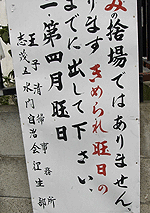 みの捨場ではありません、
ります きめられた旺日の
までに出して下さい、
一第四月旺日
王子清掃事務所
志茂五水門自治会衛生部